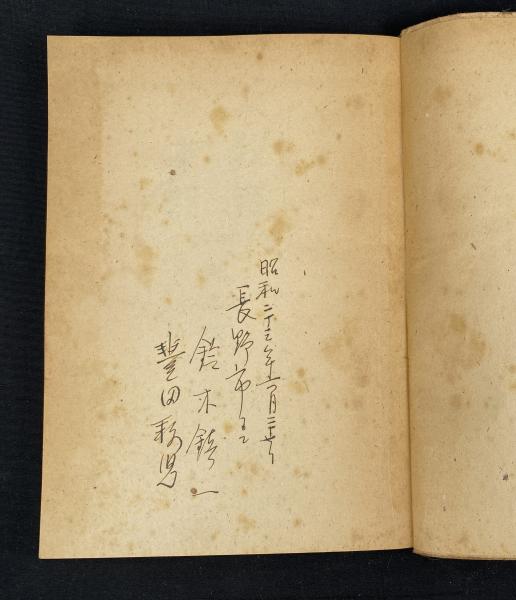 昭和二十三年六月二十七日
長野市にて
鈴木鎮一
豊田耕児